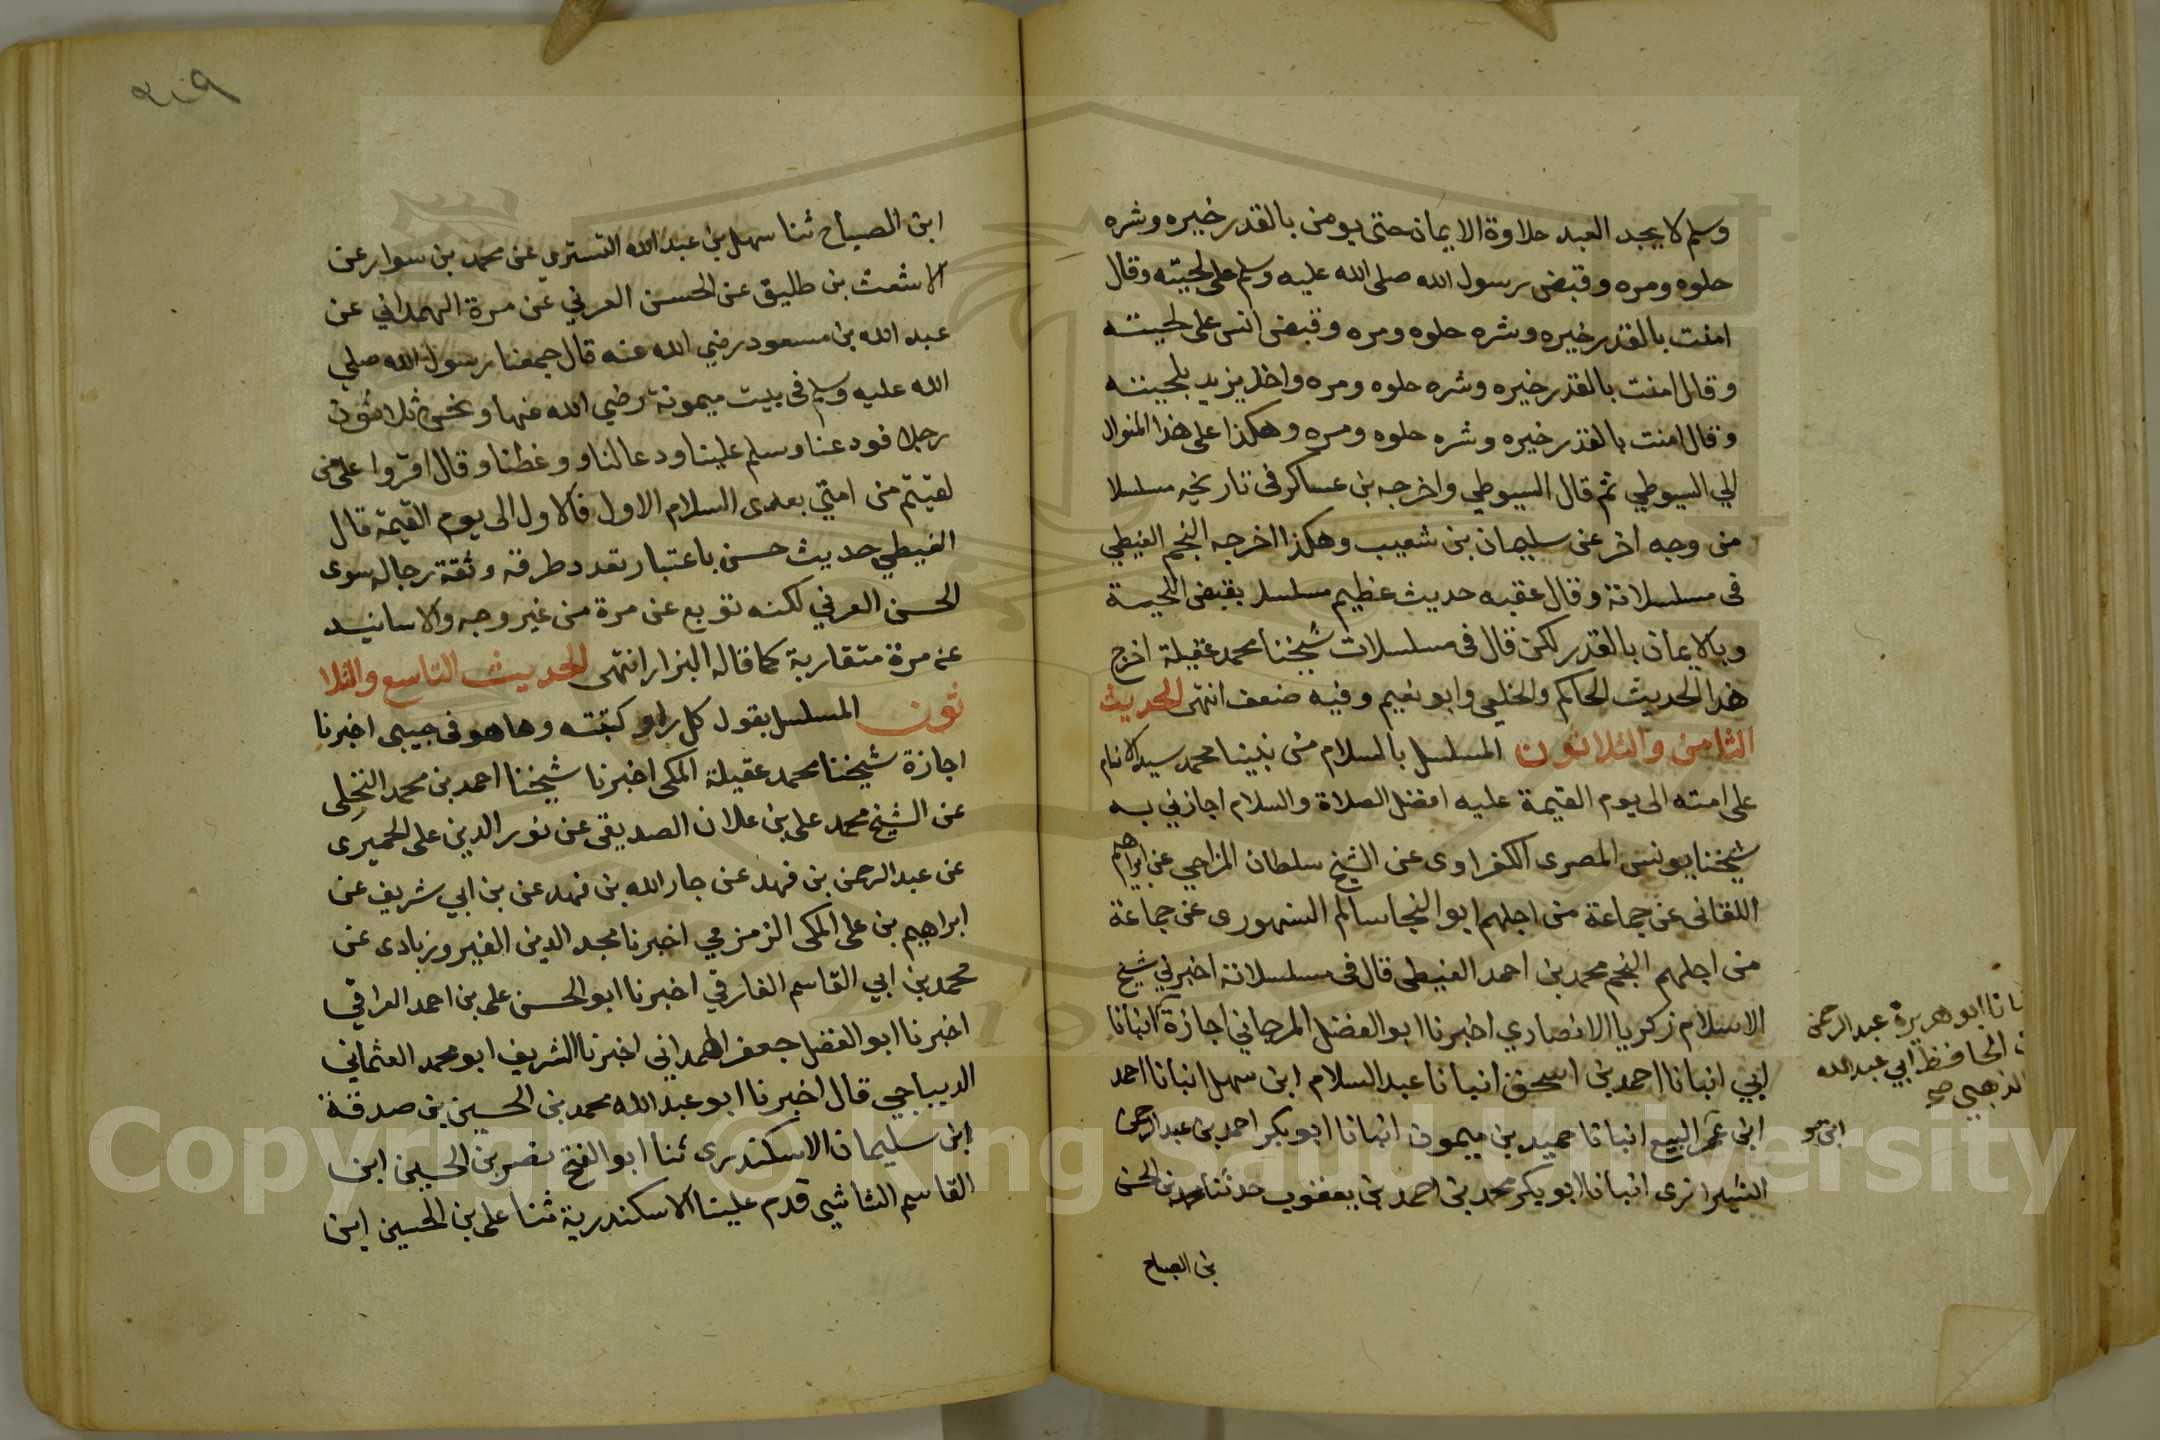 وسلم لا يجد العبد حلاوة الايمان حتى يومن بالقدر خيره وشره
حلوه ومره وقبض رسول الله صلى الله عليه وسلم على لحيته وقال
امنت بالقدر خيره وشره حلوه ومره وقبض انس على لحيته
وقال امنت بالقدر خيره وشره حلوه ومره واخذ يزيد بلحيته
وقال امنت بالقدر خيره وشره حلوه ومره وهكذا على هذا المنوال
الي السيوطي ثم قال السيوطي واخرجه بن عساكر فى تاريخه مسلسلا
من وجه اخر عن سليمان بن شعيب وهكذا اخرجه النجم الغيطي
فى مسلسلاته وقال عقبه حديث عظيم مسلسل بقبض اللحية
وبالايمان بالقدر لكن قال فى مسلسلات شيخنا محمد عقيلة اخرج
هذا الحديث الحاكم والخلعي وابو نعيم وفيه ضعف انتهى الحديث
الثامن والثلاثون المسلسل بالسلام من نبينا محمد سيد الانام
على امته الى يوم القيمة عليه افضل الصلاة والسلام اجازني به
شيخنا يونس المصرى الكفراوى عن الشيخ سلطان المزاحي عن ابراهيم
اللقانى عن جماعة من اجلهم ابو النجا سالم السنهورى عن جماعة
من اجلهم النجم محمد بن احمد الغيطى قال فى مسلسلاته اخبرني شيخ
الاسلام زكريا الانصاري اخبرنا ابو الفضل المرجاني اجازة انبانا
ابي انبانا احمد بن اسحق انبانا عبد السلام ابن سهل انبانا احمد
ابن عمر البيع انبانا حميد بن ميمون انبانا ابو بكر احمد بن عبد الرحمن
الشيرازى انبانا ابو بكر محمد بن احمد بن يعقوب حدثنا محمد بن الحسن
بن الصباح
انا ابو هريرة عبد الرحمن
الحافظ ابي عبد الله
الذهبي صح
ابن
٢٠٩
ابن الصباح ثنا سهل بن عبد الله التستري عن محمد بن سوار عن
الاشعث بن طليق عن الحسن العرني عن مرة الهمداني عن
عبد الله بن مسعود رضي الله عنه قال جمعنا رسول الله صلي
الله عليه وسلم فى بيت ميمونة رضي الله عنها ونحن ثلاثون
رجلا فودعنا وسلم علينا ودعا لنا ووعظنا وقال اقروا على من
لقيتم من امتي بعدى السلام الاول فالاول الى يوم القيمة قال
الغيطي حديث حسن باعتبار تعدد طرقه وثقة رجاله سوى
الحسن العرني لكنه توبع عن مرة من غير وجه والاسانيد
عن مرة متقاربة كما قاله البزار انتهى الحديث التاسع والثلا
ثون المسلسل بقول كل راو كتبته وها هو فى جيبى اخبرنا
اجازة شيخنا محمد عقيلة المكى اخبرنا شيخنا احمد بن محمد النخلى
عن الشيخ محمد على بن علان الصديقى عن نور الدين على الحميرى
عن عبد الرحمن بن فهد عن جار الله بن فهد عن بن ابي شريف عن
ابراهيم بن على المكى الزمزمي اخبرنا مجد الدين الفيروزبادى عن
محمد بن ابي القاسم الفارقي اخبرنا ابو الحسن على بن احمد العراقي
اخبرنا ابو الفضل جعفر الهمدانى اخبرنا الشريف ابو محمد العثمانى
الديباجي قال اخبرنا ابو عبد الله محمد بن الحسين بن صدقة
ابن سليمان الاسكندرى ثنا ابو الفتح نصر بن الحسين ابن
القاسم الشاشي قدم علينا الاسكندرية ثنا على بن الحسين ابن
Copyright © King Saud University